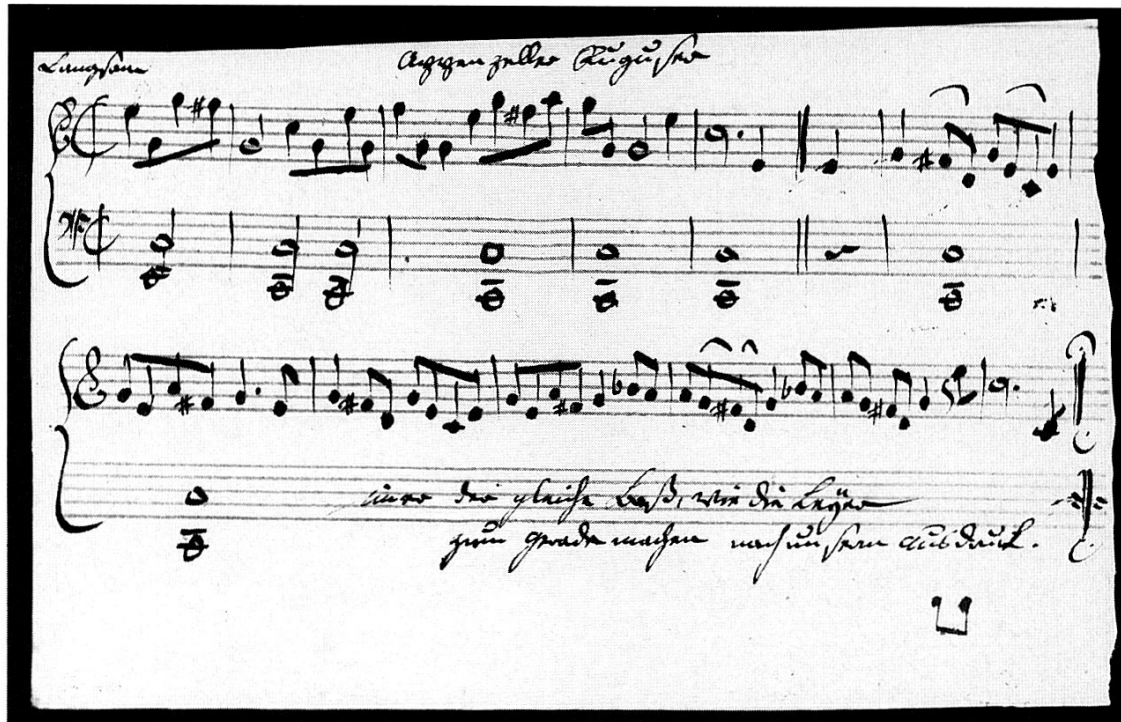 Langsam
Appenzeller Kuguser
imer der gleiche Baß, wie die Leÿer
zum gerade machen nach unserm Ausdruck.